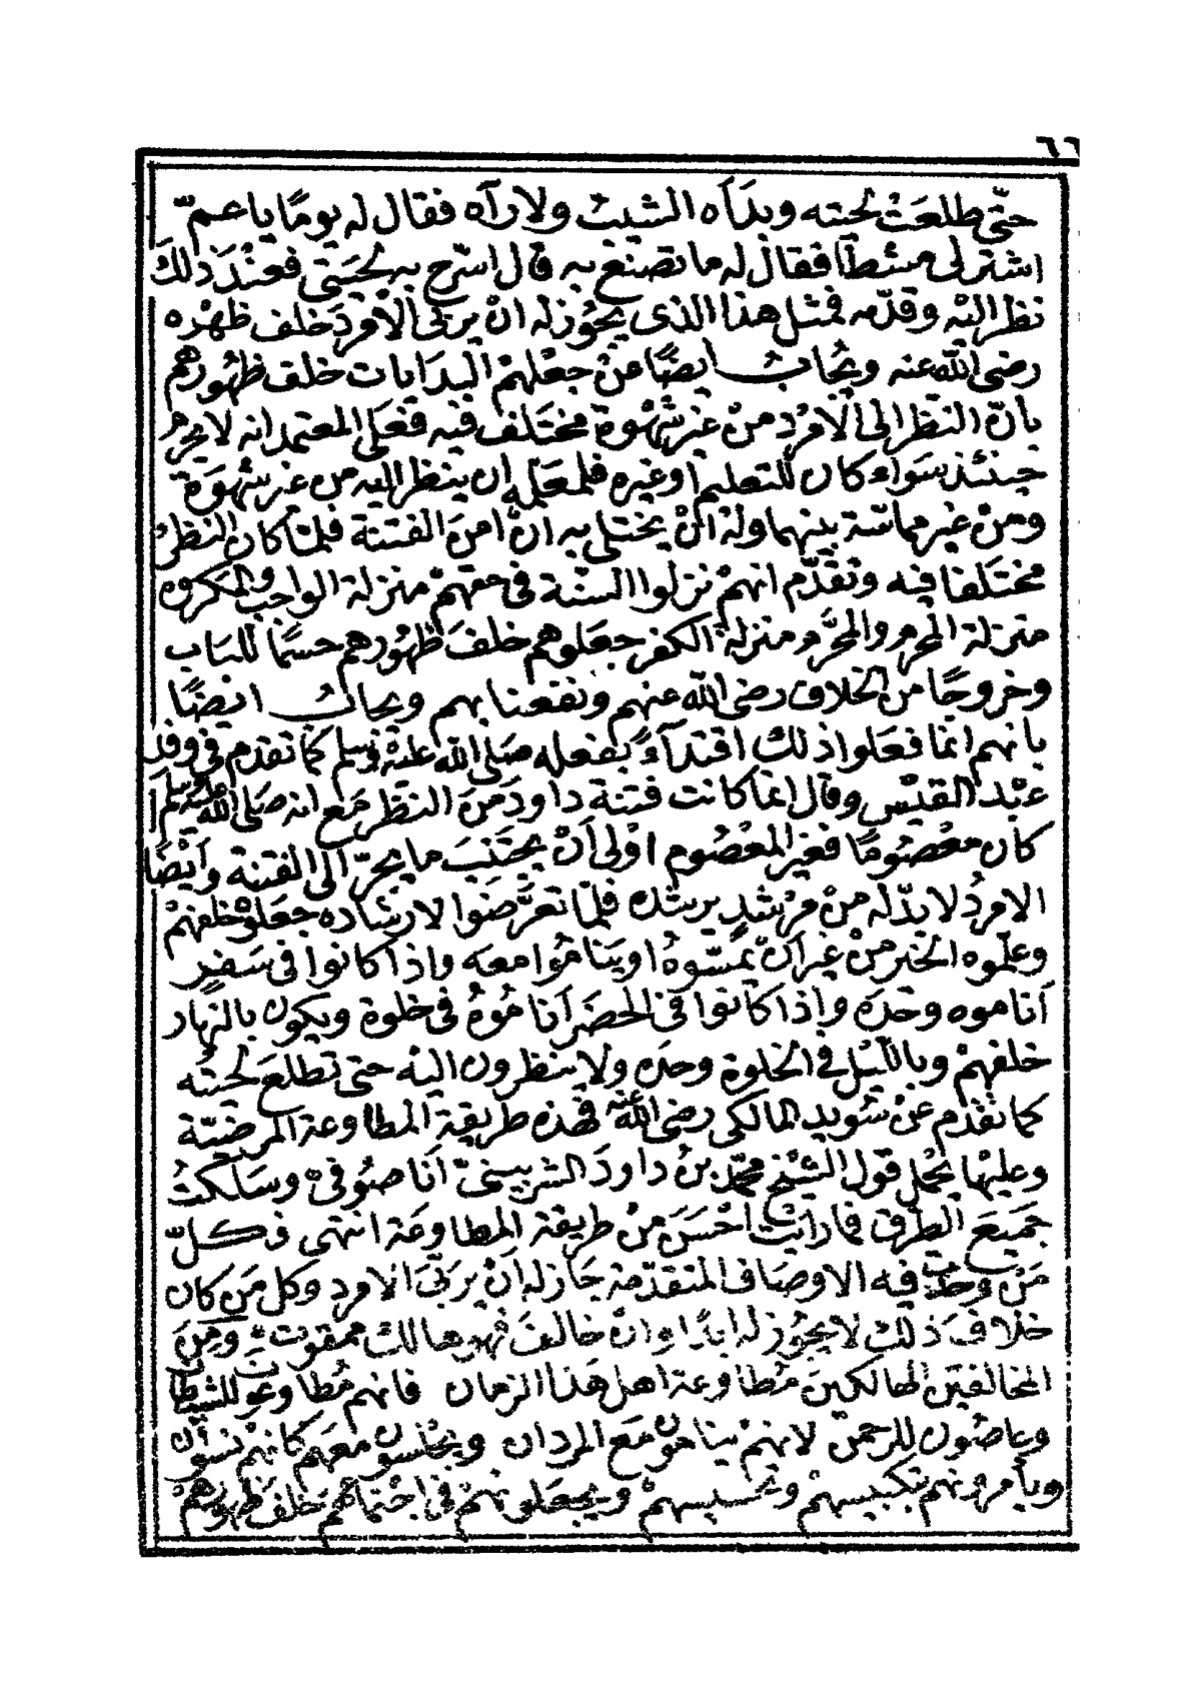 ٦٦
حتّى طلعَتْ لحيته وبدَأه الشيبُ ولا رآه فقال له يومًا يا عمّ
اشتر لى مشطًا فقال له ما تصنع به قال اسرّح به لحيَتى فعنْدَ ذلكَ
نظر اليْه وقدّمه فمثل هذا الذى يجُوز له انْ يربّى الامْردَ خلف ظهْره
رضى الله عنه ويجُابُ ايضًا عنْ جعْلهمْ البدَايات خلف ظهُورهم
بأنّ النظر الى الامْرد منْ غير شهْوة مختَلف فيه فعَلى المعتمد انه لا يحرم
حينئذ سَواء كان للتعليم أو غيره فلمعَلمه ان ينظر اليه من غير شهْوَة
ومنْ غير مماسّة بينهما وله انْ يختلى به انْ امنَ الفتنة فلمّا كان النظرُ
مختَلفا فيه وتقدّم انهمْ نزلوا السنّة فى حقهمْ منزلة الواجب والمكروه
منزلة المحرم والمحرّم منزلة الكفر جعَلوهم خلفَ ظهُورهم حسمًا للبَاب
وخروجًا من الخلاف رضى الله عنهم ونفعنا بهم ويجابُ ايضًا
بانهم انما فعَلوا ذلك اقتدآءً بفعله صَلى الله عليْه وسلم كما تقدم فى وفد
عبْد القيْس وقال انما كانت فتنة داودَ منَ النظر مَع انه صَلى الله عليه وسلم
كان معْصُومًا فغير المعْصُوم اوْلى أنْ يجتَنبَ ما يجرّ الى الفتنة وأيْضًا
الامردُ لا بدّ له منْ مرْشد يرشده فلمّا تعرّضوا لارشاده جعَلوْه خلفهمْ
وعلّموه الخير منْ غير أنْ يمسّوهُ او يَنامُوا معه واذا كانوا فى سَفر
أنا موه وحدَه وإذا كانوا فى الحضَر أنا مُوهُ فى خلوة ويكون بالنهار
خلفهمْ وبالليْل فى الخلوة وحده ولا ينظرون اليْه حتى تطلعَ لحيتُه
كما تقدم عنْ سُويد المالكى رضى الله عنه فهذه طريقة المطاوعة المرضيّة
وعليْها يحْمل قول الشيْخ محمّد بنُ داودَ الشربينىّ أنا صُوفىْ وسَلكتُ
جميَعَ الطرُق فما رايتُ احْسَنَ منْ طريقة المطاوعَة انتهى فكلّ
مَنْ وجدَتْ فيه الاوصَاف المتقدّمة جَاز له أنْ يربّىَ الامرد وكل مَن كان
خلافَ ذلك لا يجُوز له ابدًا وانْ خالفَ فهو هالك ممقوت ومنَ
المخالفين الهالكينَ مُطاوعة اهل هَذا الزمان فانهم مُطاوعُون للشيطان
وعاصُون للرحمن لانهمْ ينامُون مَع المردان ويجْلسُون معَهم كانهمْ نسوان
ويأمرونهم بتكبيسهمْ ويجعَلونهمْ فى اجْتماعهم خلفَ ظهورهمْ